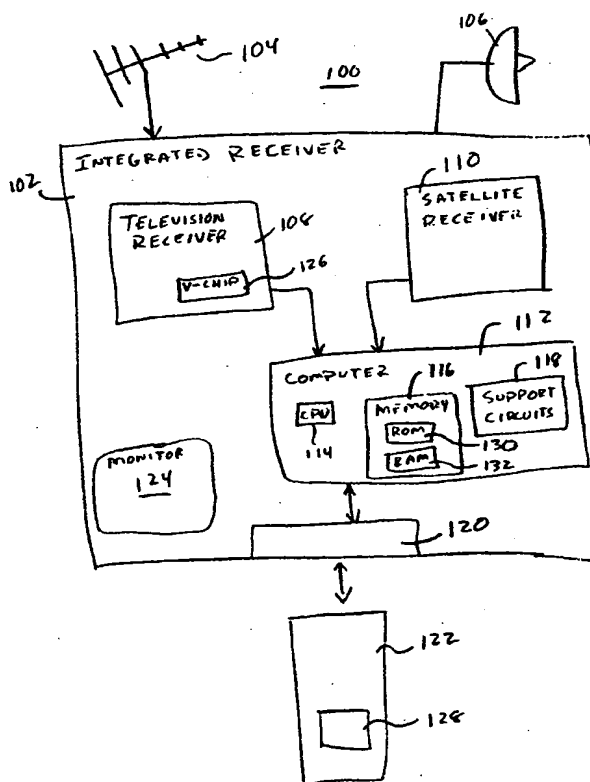 104
100
106
INTEGRATED RECEIVER
102
110
TELEVISION
RECEIVER
108
V-CHIP
126
SATELLITE
RECEIVER
112
COMPUTER
116
118
CPU
114
MEMORY
ROM
130
RAM
132
SUPPORT
CIRCUITS
MONITOR
124
120
122
128